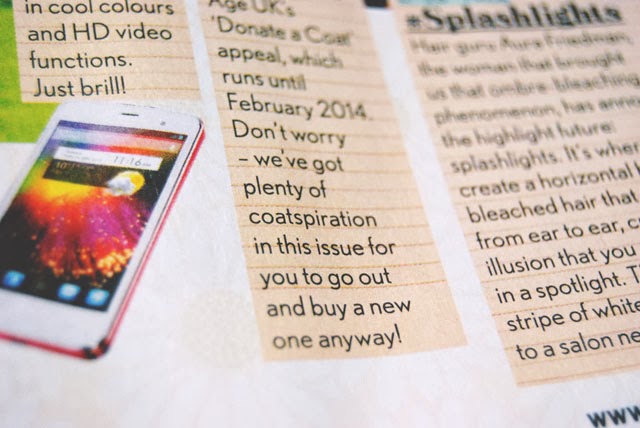 in cool colours
and HD video
functions.
Just brill!
11:16 AM
Age UK's
'Donate a Coat'
appeal, which
runs until
February 2014.
Don't worry
– we've got
plenty of
coatspiration
in this issue for
you to go out
and buy a new
one anyway!
#Splashlights
Hair guru Aura Friedman,
the woman that brought
us that ombre-bleaching
phenomenon, has
the highlight future:
splashlights. It's
create a horizontal
bleached hair that
from ear to ear,
illusion that you
in a spotlight.
stripe of white
to a salon
www